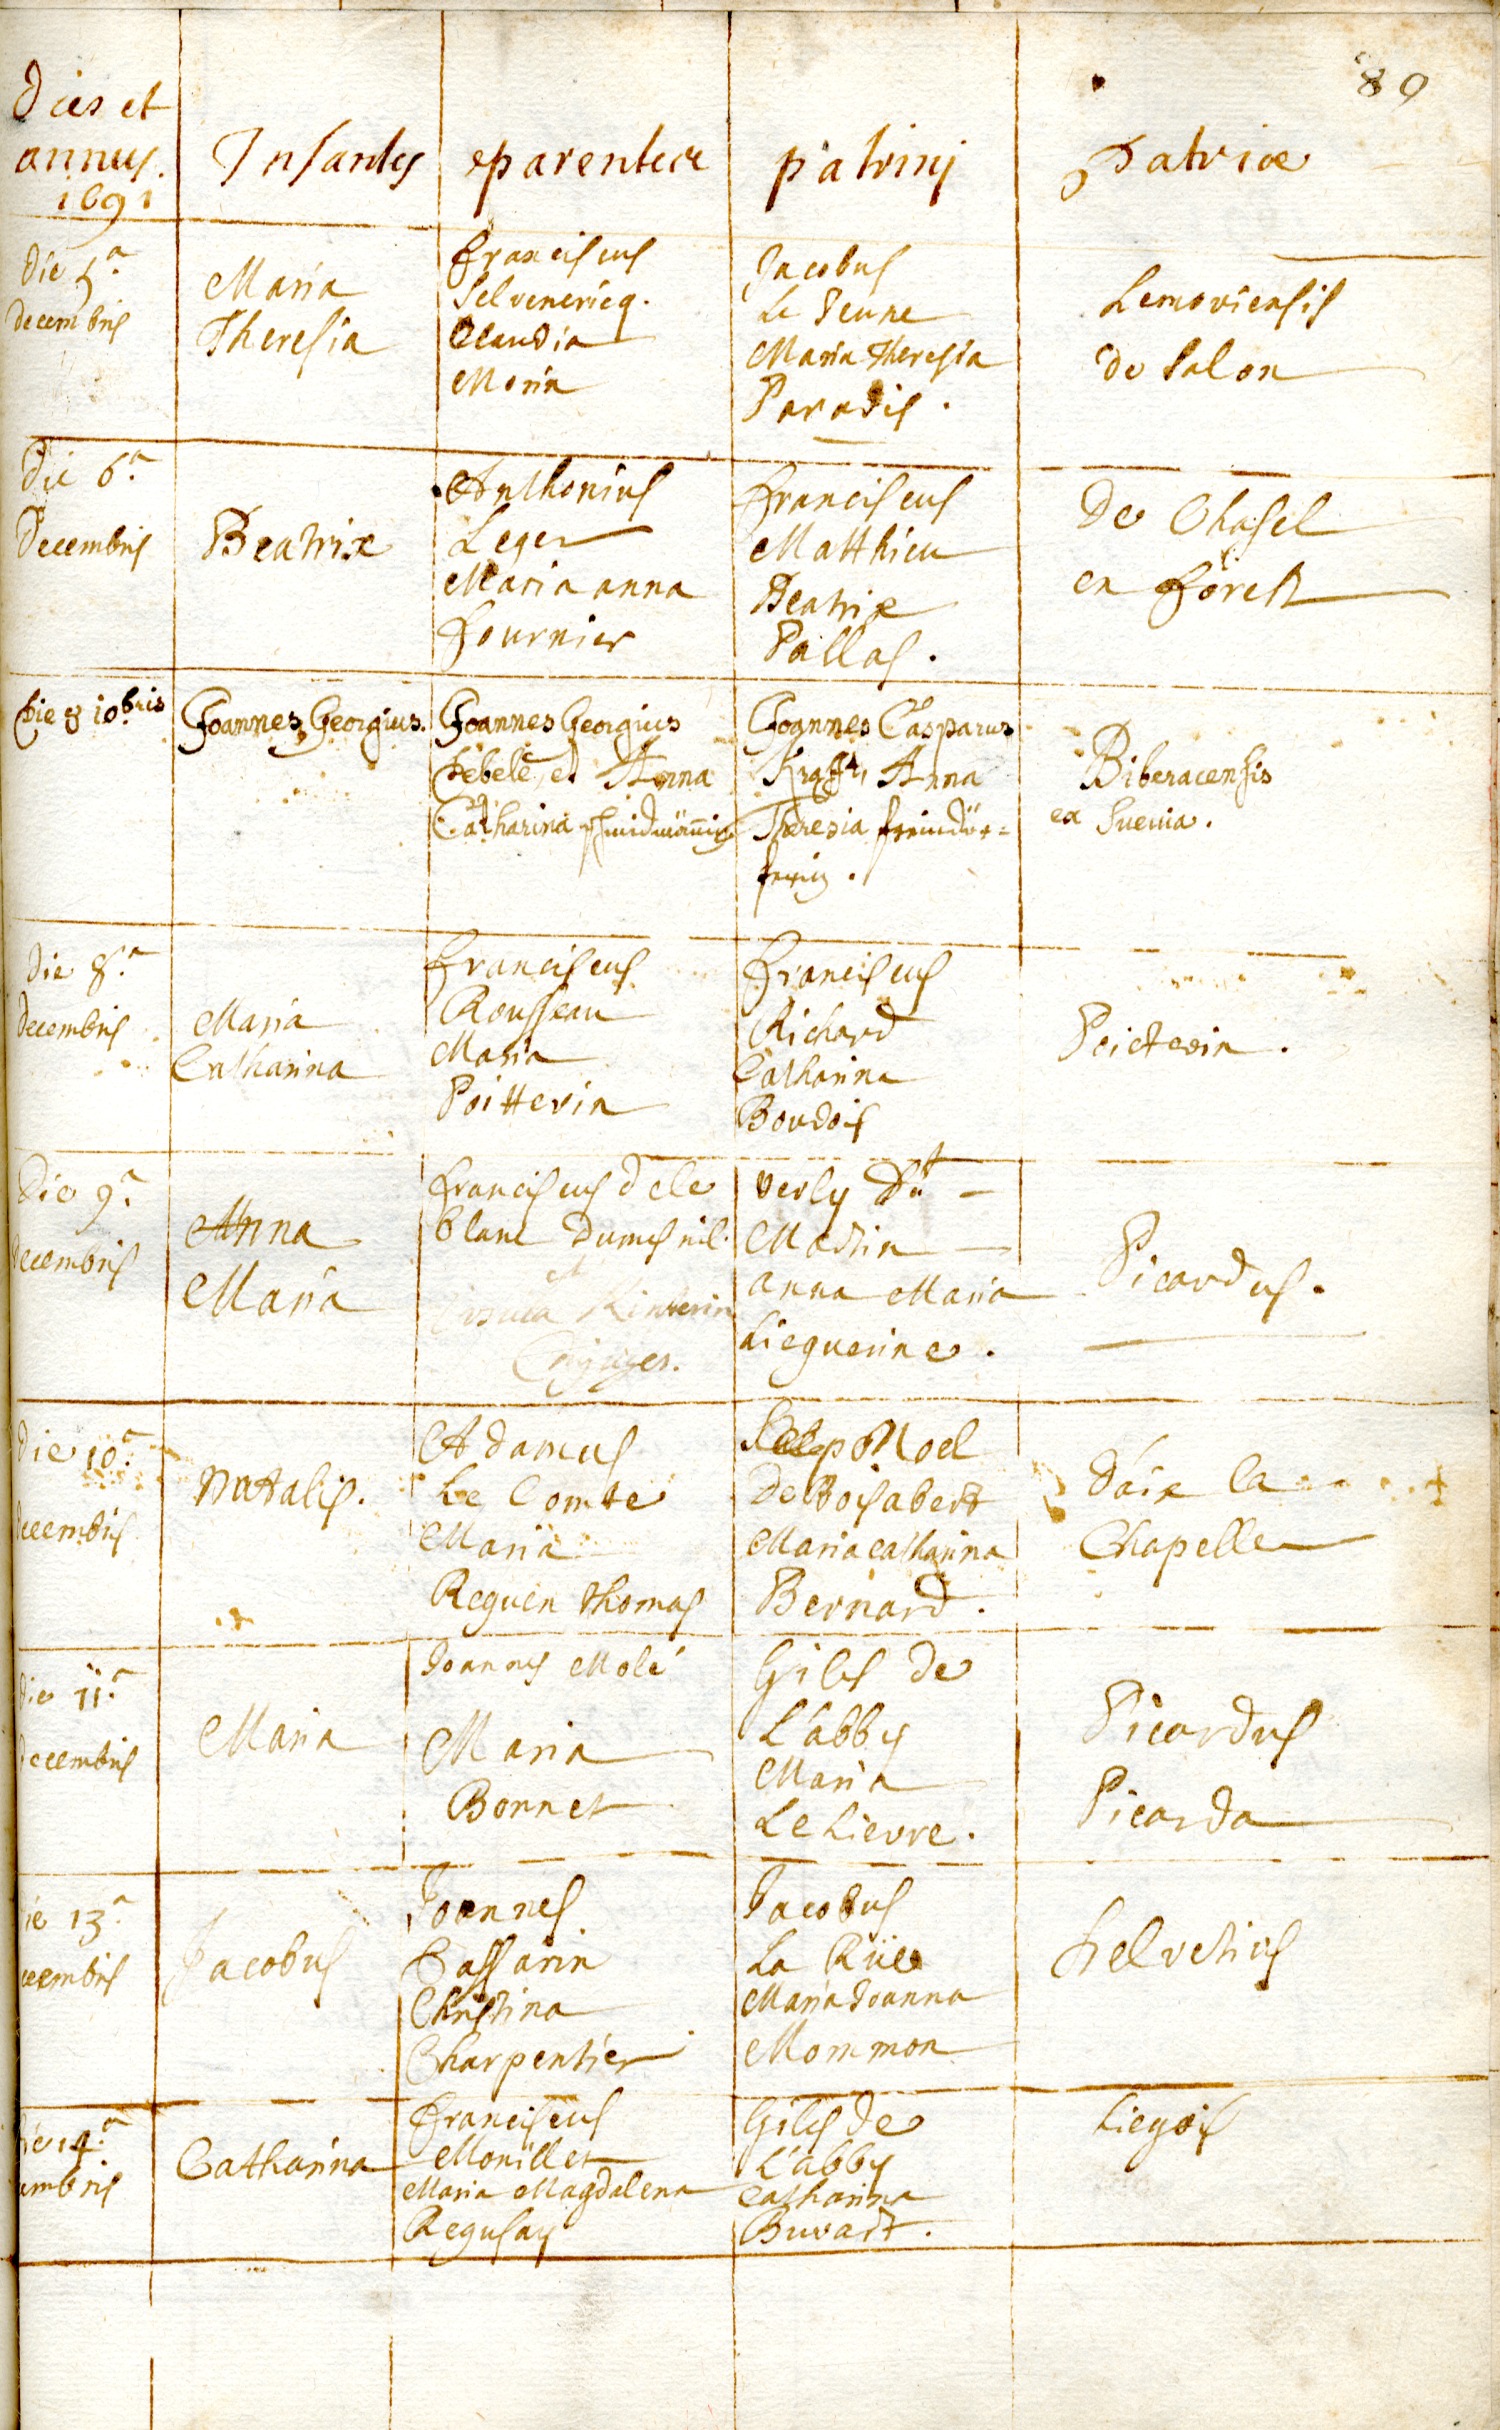 89
Dies et
annus.
1691
Infantes
parentes
patrini
Patria
Die 5.a
decembris
Maria
Theresia
Franciscus
Selvenericq.
Claudia
Morin
Jacobus
Le Jeune
Maria Theresia
Paradis.
Lemoviensis
de Salon
Die 6.a
Decembris
Beatrix
Anthonius
Leger
Maria anna
Fournier
Franciscus
Matthieu
Beatrix
Pallas.
De Chasel
en Forest
Die 8 10bris
Joannes Georgius.
Joannes Georgius
Debele, et Anna
Catharina
Joannes Casparus
Krafft, Anna
Theresia
Biberacensis
ex Suevia.
Die 8.a
decembris
Maria
Catharina
Franciscus
Rousseau
Maria
Poittevin
Franciscus
Richard
Catharina
Bourdois
Poictevin.
Die 9.a
decembris
Anna
Maria
Franciscus dele
blanc dumesnil.
et
Ursula Kinterin
Conjuges.
verly dit
Martin
anna Maria
Lieguerine.
Picardus.
Die 10.a
decembris
Natalis.
Adamus
Le Comte
Maria
Reguen thomas
Noel
De Boisabert
Maria catharina
Bernard.
d'aix la
Chapelle
Die 11.a
decembris
Maria
Joannes Molé
Maria
Bonnet
Giles de
L'abby
Maria
Le Lievre.
Picardus
Picarda
die 13.a
decembris
Jacobus
Joannes
Cassarin
Christina
Charpentier
Jacobus
La Rüe
Maria Joanna
Mommon
helvetius
die 14.a
embris
Catharina
Franciscus
Monillet
Maria Magdalena
Regusay
Giles de
L'abby
Catharina
Buvart.
Liegois